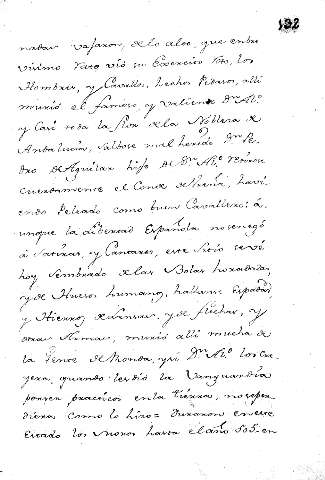 132
natas vajaron, de lo alto, que entre
vivimo rato vió su Exercito roto, los
Hombres, y Cavallos, hechos Pedazos, alli
murió el famoso, y valiente Dⁿ Alº.
y Casi toda la flor de la Nobleza de
Andalucia, Saliose mal herido Dⁿ Pe-
dro de Aguilar hijo de Dⁿ Alº. retirose
cuerdamente el Conde de Ureña, havi-
endo Peleado como buen Cavallero: à
unque la livertad Española no se negó
à Satiras, y Cantares, este Sitio se vé
hoy Sembrado de las Bolas horadadas,
y de Huesos humanos, hallanse Espadas
y Hierros de Lanzas, y de flechas, y
otras Armas, murió alli mucha de
la Gente de Ronda, y si Dⁿ Alº. los Cre-
yera, quando les dió la Vanguardia
por ser practicos en la tierra, no se per-
diera como lo hizo = Duraron en este
Estado los Moros hasta el año 505. en